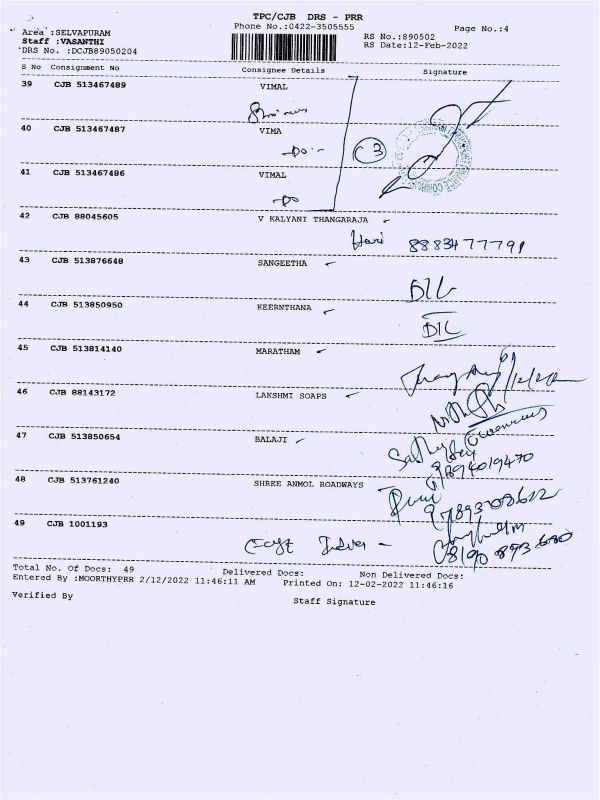 TPC/CJB DRS - PRR
Area :SELVAPURAM Phone No.:0422-3505555 Page No.:4
Staff :VASANTHI RS No.:890502
DRS No. :DCJB89050204 RS Date:12-Feb-2022
S No Consignment No Consignee Details Signature
39 CJB 513467489 VIMAL
40 CJB 513467487 VIMA
Do
C3
41 CJB 513467486 VIMAL
Do
42 CJB 88045605 V KALYANI THANGARAJA
Hari 8883477791
43 CJB 513876648 SANGEETHA
DIL
44 CJB 513850950 KEERNTHANA
DIL
45 CJB 513814140 MARATHAM
46 CJB 88143172 LAKSHMI SOAPS
47 CJB 513850654 BALAJI
48 CJB 513761240 SHREE ANMOL ROADWAYS
49 CJB 1001193
Total No. Of Docs: 49 Delivered Docs: Non Delivered Docs:
Entered By :MOORTHYPRR 2/12/2022 11:46:11 AM Printed On: 12-02-2022 11:46:16
Verified By Staff Signature